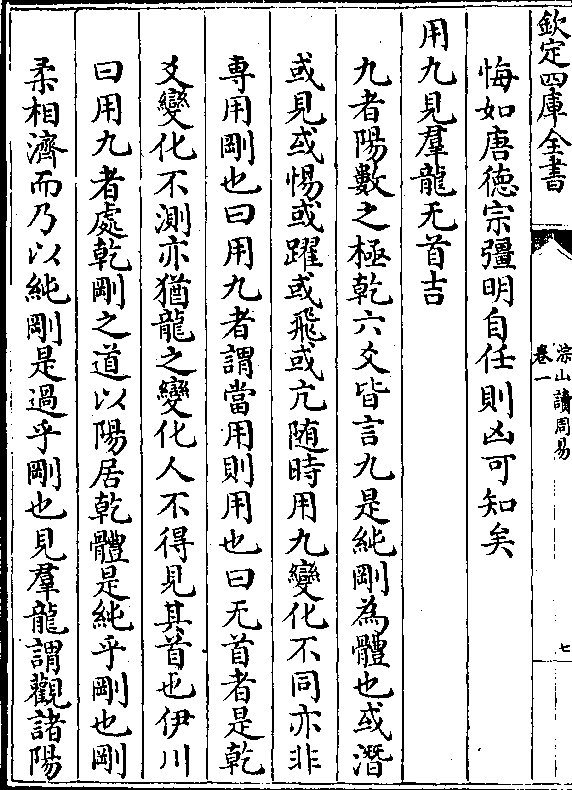 欽定四庫全書
淙山讀周易
卷一
七
悔如唐德宗彊明自任則凶可知矣
用九見羣龍无首吉
九者陽數之極乾六爻皆言九是純剛為體也或潛
或見或惕或躍或飛或亢随時用九變化不同亦非
專用剛也曰用九者謂當用則用也曰无首者是乾
爻變化不測亦猶龍之變化人不得見其首也伊川
曰用九者處乾剛之道以陽居乾體是純乎剛也剛
柔相濟而乃以純剛是過乎剛也見羣龍謂觀諸陽